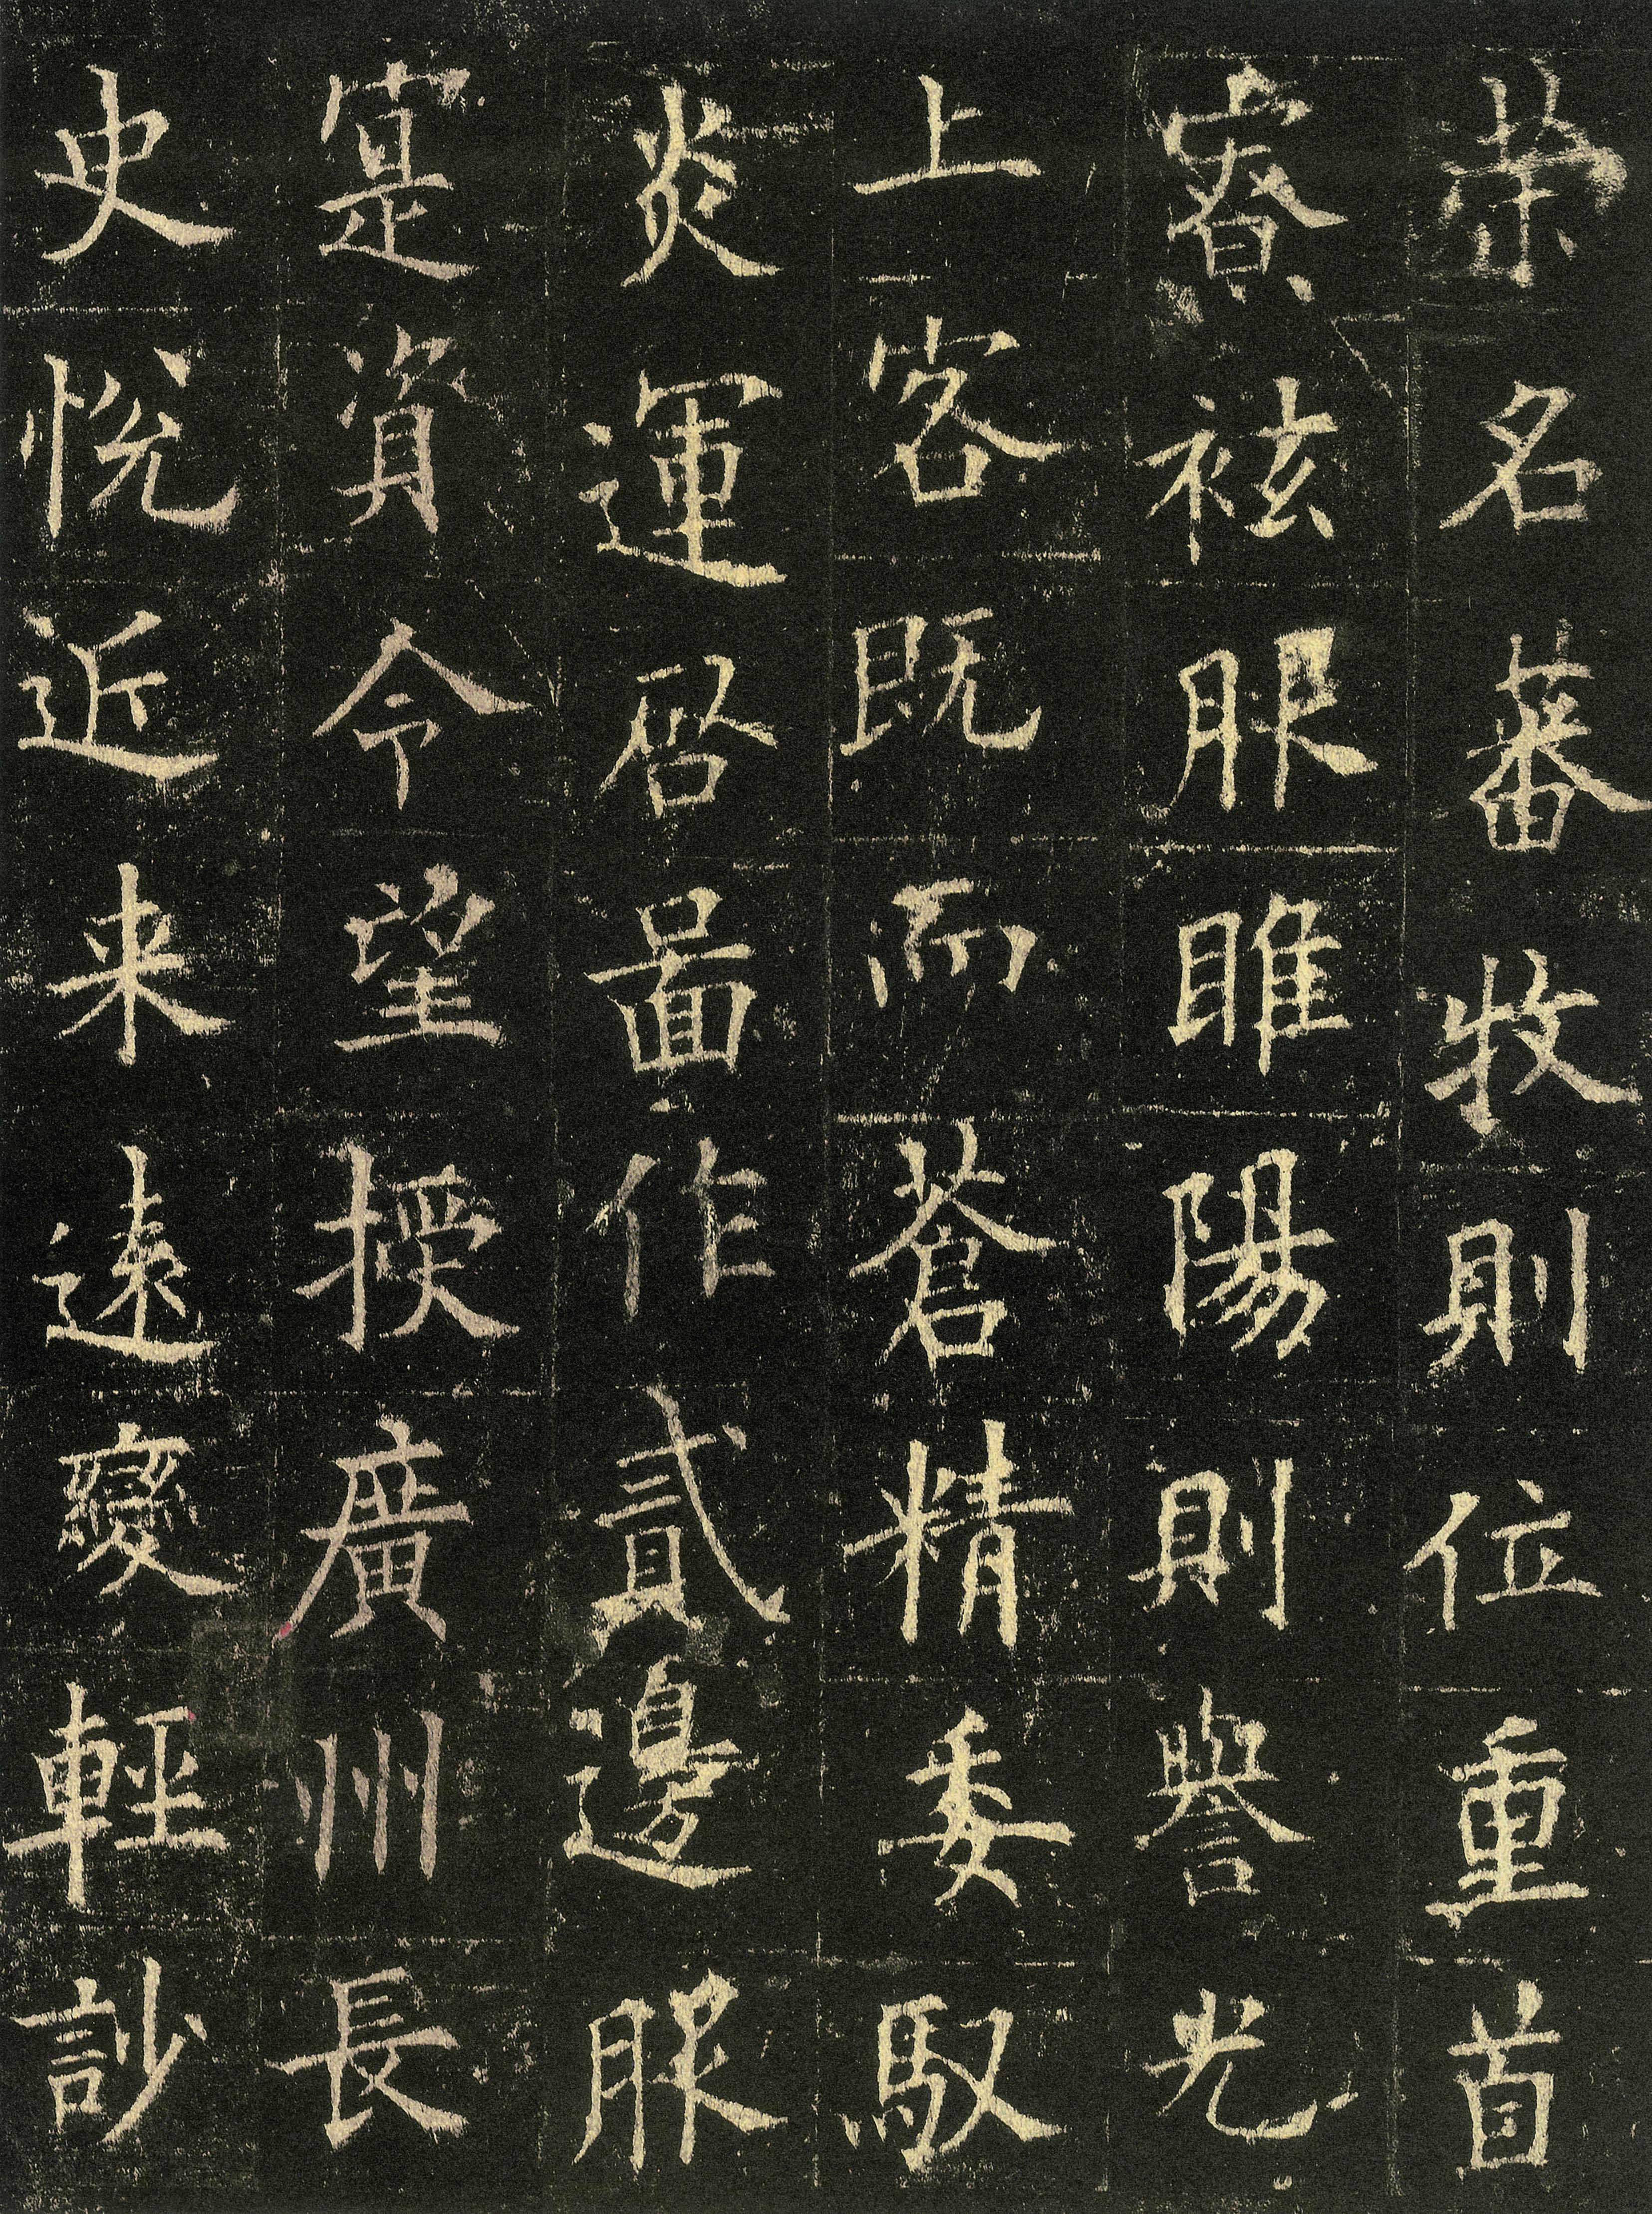 荣名蕃牧則位重首
寮袨服睢陽則譽光
上客既而蒼精委馭
炎運啓啚作貳邊服
寔資令望授廣州長
史悅近来遠變輕訬